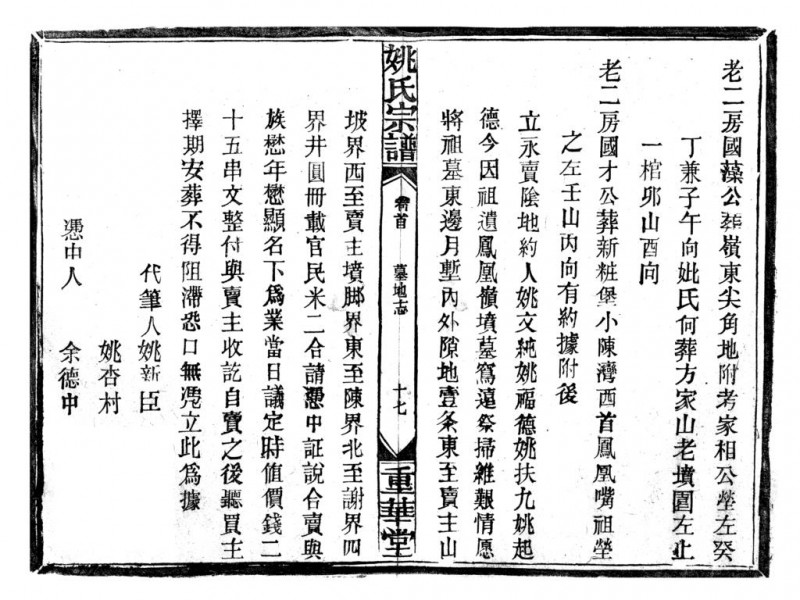 老二房國藻公葬嶺東尖角地附考家相公塋左癸
丁兼子午向妣氏何葬方家山老墳圍左止
一棺夘山酉向
老二房國才公葬新粧堡小陳灣西首鳳凰嘴祖塋
之左壬山丙向有約據附後
立永賣陰地約人姚文純姚福德姚扶九姚起
德今因祖遺鳳凰嶺墳墓寫遠祭掃維艱情愿
將祖墓東邊月塹內外隙地壹条東至賣主山
姚氏宗譜
卷首
墓地志
十七
重華堂
坡界西至賣主墳脚界東至陳界北至謝界四
界井圓冊載官民米二合請憑中証說合賣與
族懋年懋顯名下爲業當日議定時值價錢二
十五串文整付與賣主收訖自賣之後聽買主
擇期安葬不得阻滯恐口無憑立此爲據
代筆人姚新臣
姚杏村
憑中人
余德中